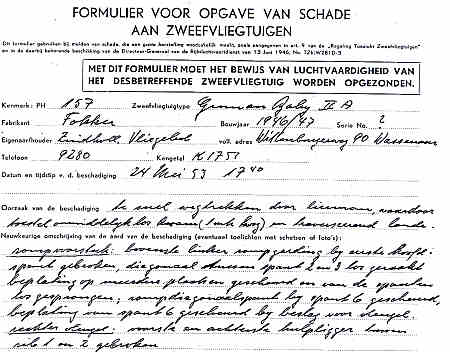 FORMULIER VOOR OPGAVE VAN SCHADE
AAN ZWEEFVLIEGTUIGEN
Dit formulier gebruiken bij melden van schade, die een grote herstelling noodzakelijk maakt, zoals aangegeven in art. 9 van de „Regeling Toezicht Zweefvliegtuigen"
en in de daarbij behorende beschikking van de Directeur-Generaal van de Rijksluchtvaartdienst van 13 Juni 1946, No.
MET DIT FORMULIER MOET HET BEWIJS VAN LUCHTVAARDIGHEID VAN
HET DESBETREFFENDE ZWEEFVLIEGTUIG WORDEN OPGEZONDEN.
Kenmerk: PH 157 Zweefvliegtuigtype Grunau Baby II A
Fabrikant Fokker Bouwjaar 1946/47 Serie No. 2
Eigenaar/houder Zuidholl. Vliegclub voll. adres 90 Wassenaar
Telefoon 9280 Kengetal K1751
Datum en tijdstip v. d. beschadiging 24 Mei 53 17 40
Oorzaak van de beschadiging te snel wegtrekken door lierman, waardoor
toestel onmiddellijk los kwam (1 mtr hoog) en traverserend landde.
Nauwkeurige omschrijving van de aard van de beschadiging (eventueel toelichten met schetsen of foto's):
rompvoorstuk: bovenste linker rompgording bij eerste hoofd-
spant gebroken, diagonaal tussen spant 2 en 3 los geraakt
beplating op meerdere plaatsen gescheurd en van de spanten
los gesprongen; rompdiagonaalspant by spant 6 gescheurd,
beplating van spant 6 gescheurd by beslag voor vleugel.
rechter vleugel: voorste en achterste hulpligger tussen
rib 1 en 2 gebroken